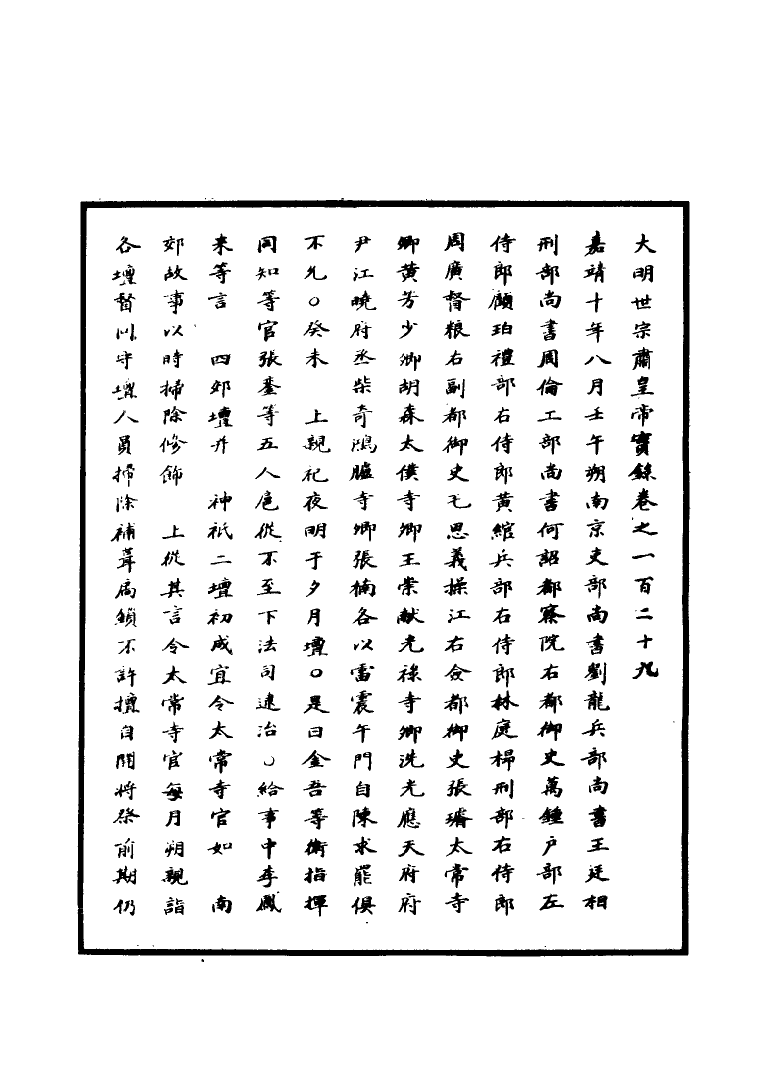 大明世宗肅皇帝實錄卷之一百二十九
嘉靖十年八月壬午朔南京吏部尚書劉龍兵部尚書王廷相
刑部尚書周倫工部尚書何詔都察院右都御史萬鏜户部左
侍郎顧珀禮部右侍郎黃綰兵部右侍郎林庭㭿刑部右侍郎
周廣督粮右副都御史毛思義操江右僉都御史張璿太常寺
卿黃芳少卿胡森太僕寺卿王崇献光祿寺卿洗光應天府府
尹江曉府丞柴奇鴻臚寺卿張楠各以雷震午門自陳求罷俱
不允○癸未　上親祀夜明于夕月壇○是日金吾等衛指揮
同知等官張鏊等五人扈從不至下法司逮治○給事中李鳳
来等言　四郊壇并　神祇二壇初成宜令太常寺官如　南
郊故事以時掃除修飾　上從其言令太常寺官每月朔親詣
各壇督以守壇人員掃除補葺扃鎖不許擅自開將祭前期仍